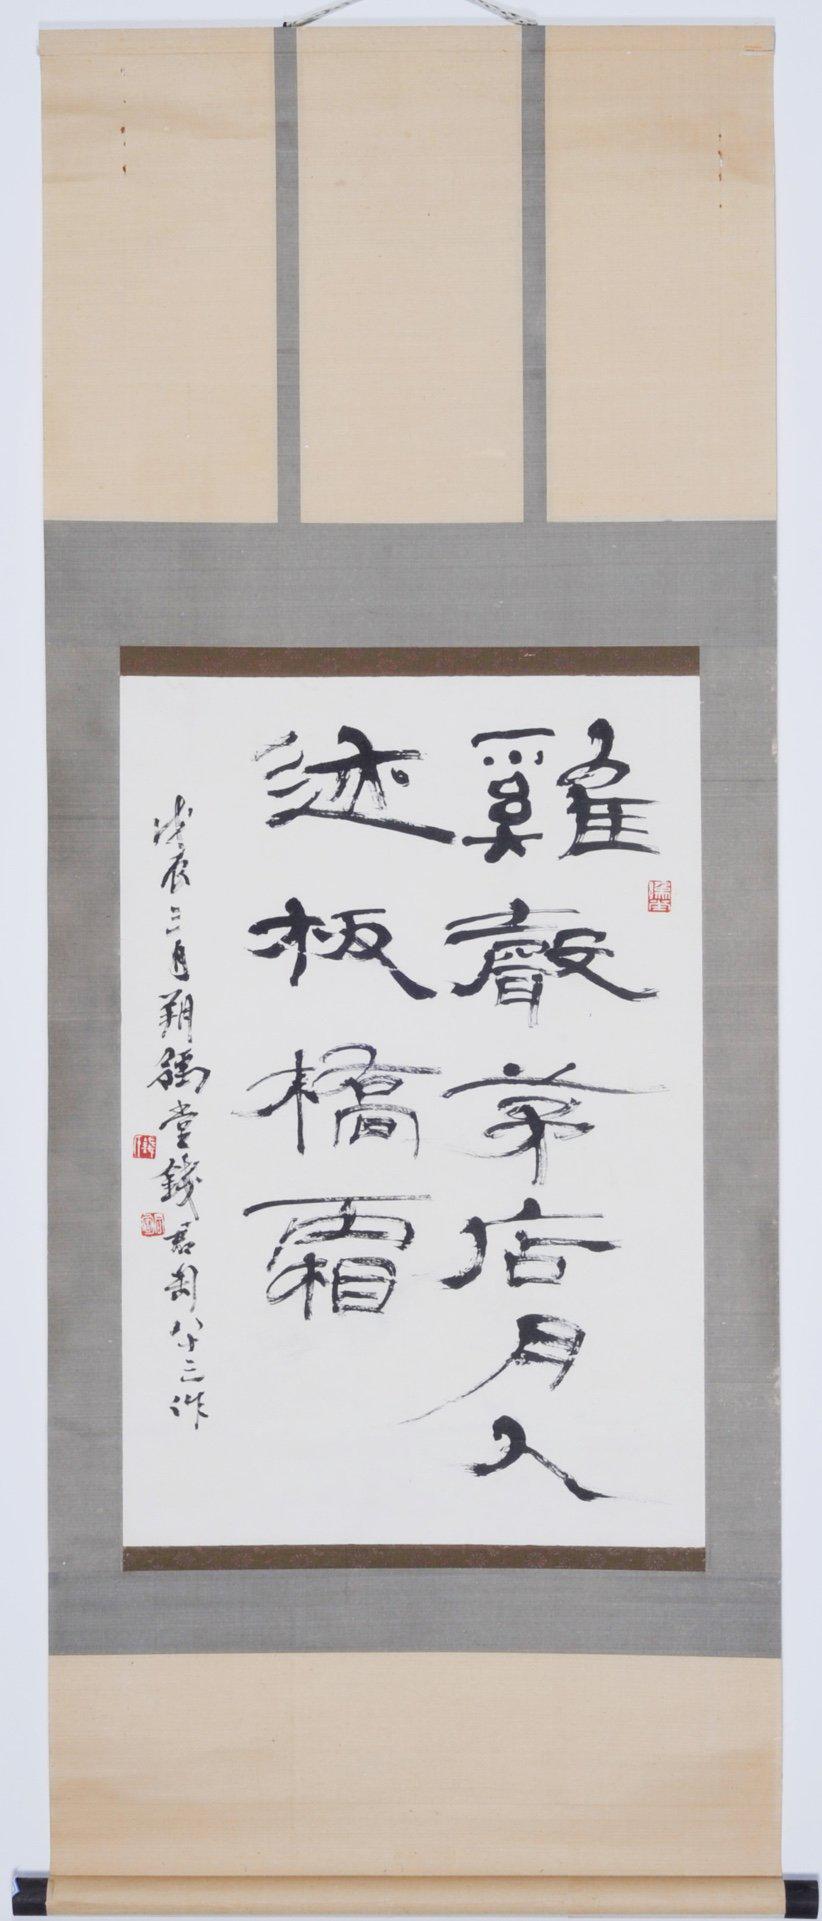 雞聲茅店月人
迹板橋霜
戊辰三月朔豫堂錢君匋八十三作